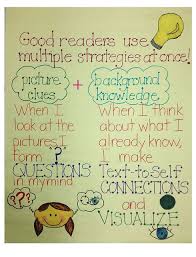 Good readers use
multiple strategies at once!
picture clues + background knowledge
When I
look at the
pictures I
form ?
QUESTIONS
in my mind
???
When I think
about what I
already know,
I make
Text-to-Self
CONNECTIONS
and
VISUALIZE